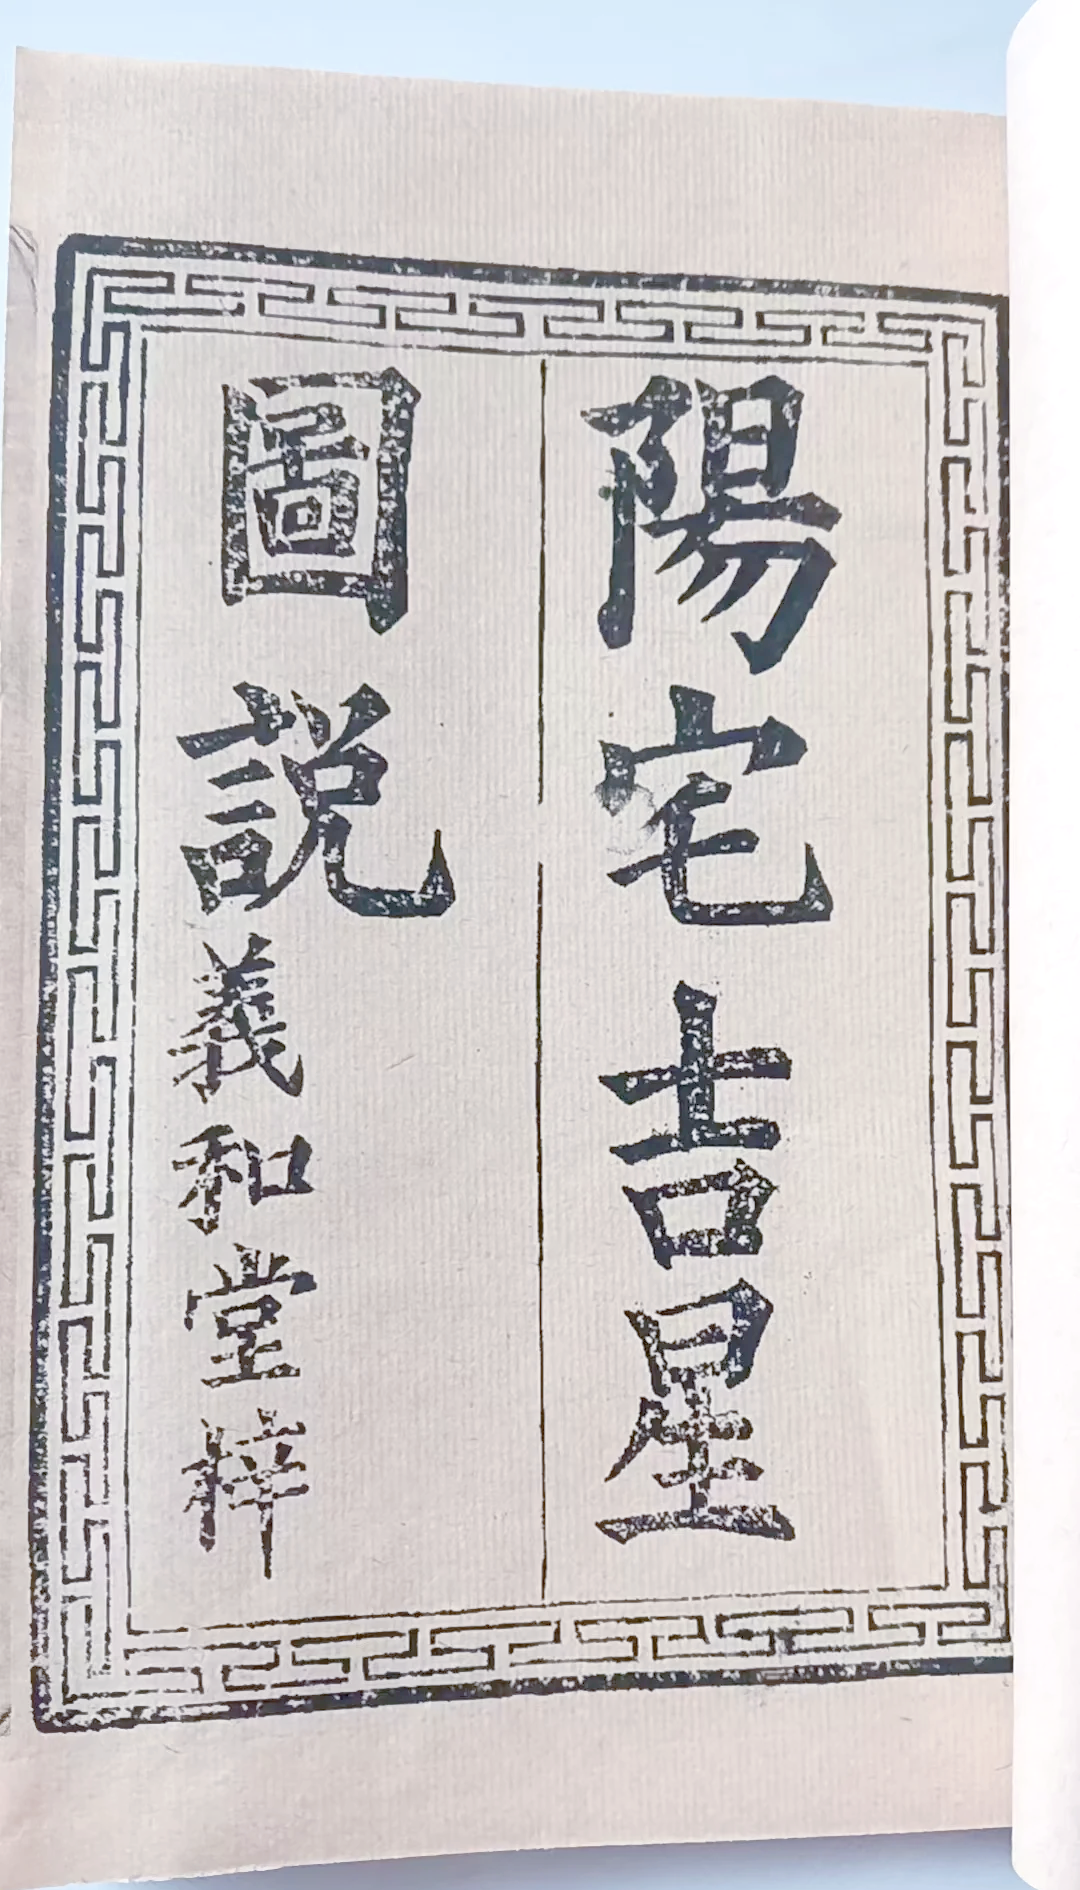 陽宅吉星
圖説義和堂梓